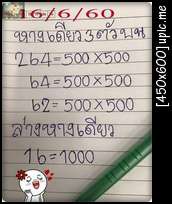 16/6/60
หางเดียว3ตัวบน
264=500×500
64=500×500
62=500×500
ล่างหางเดียว
16=1000
[450x600] upic.me